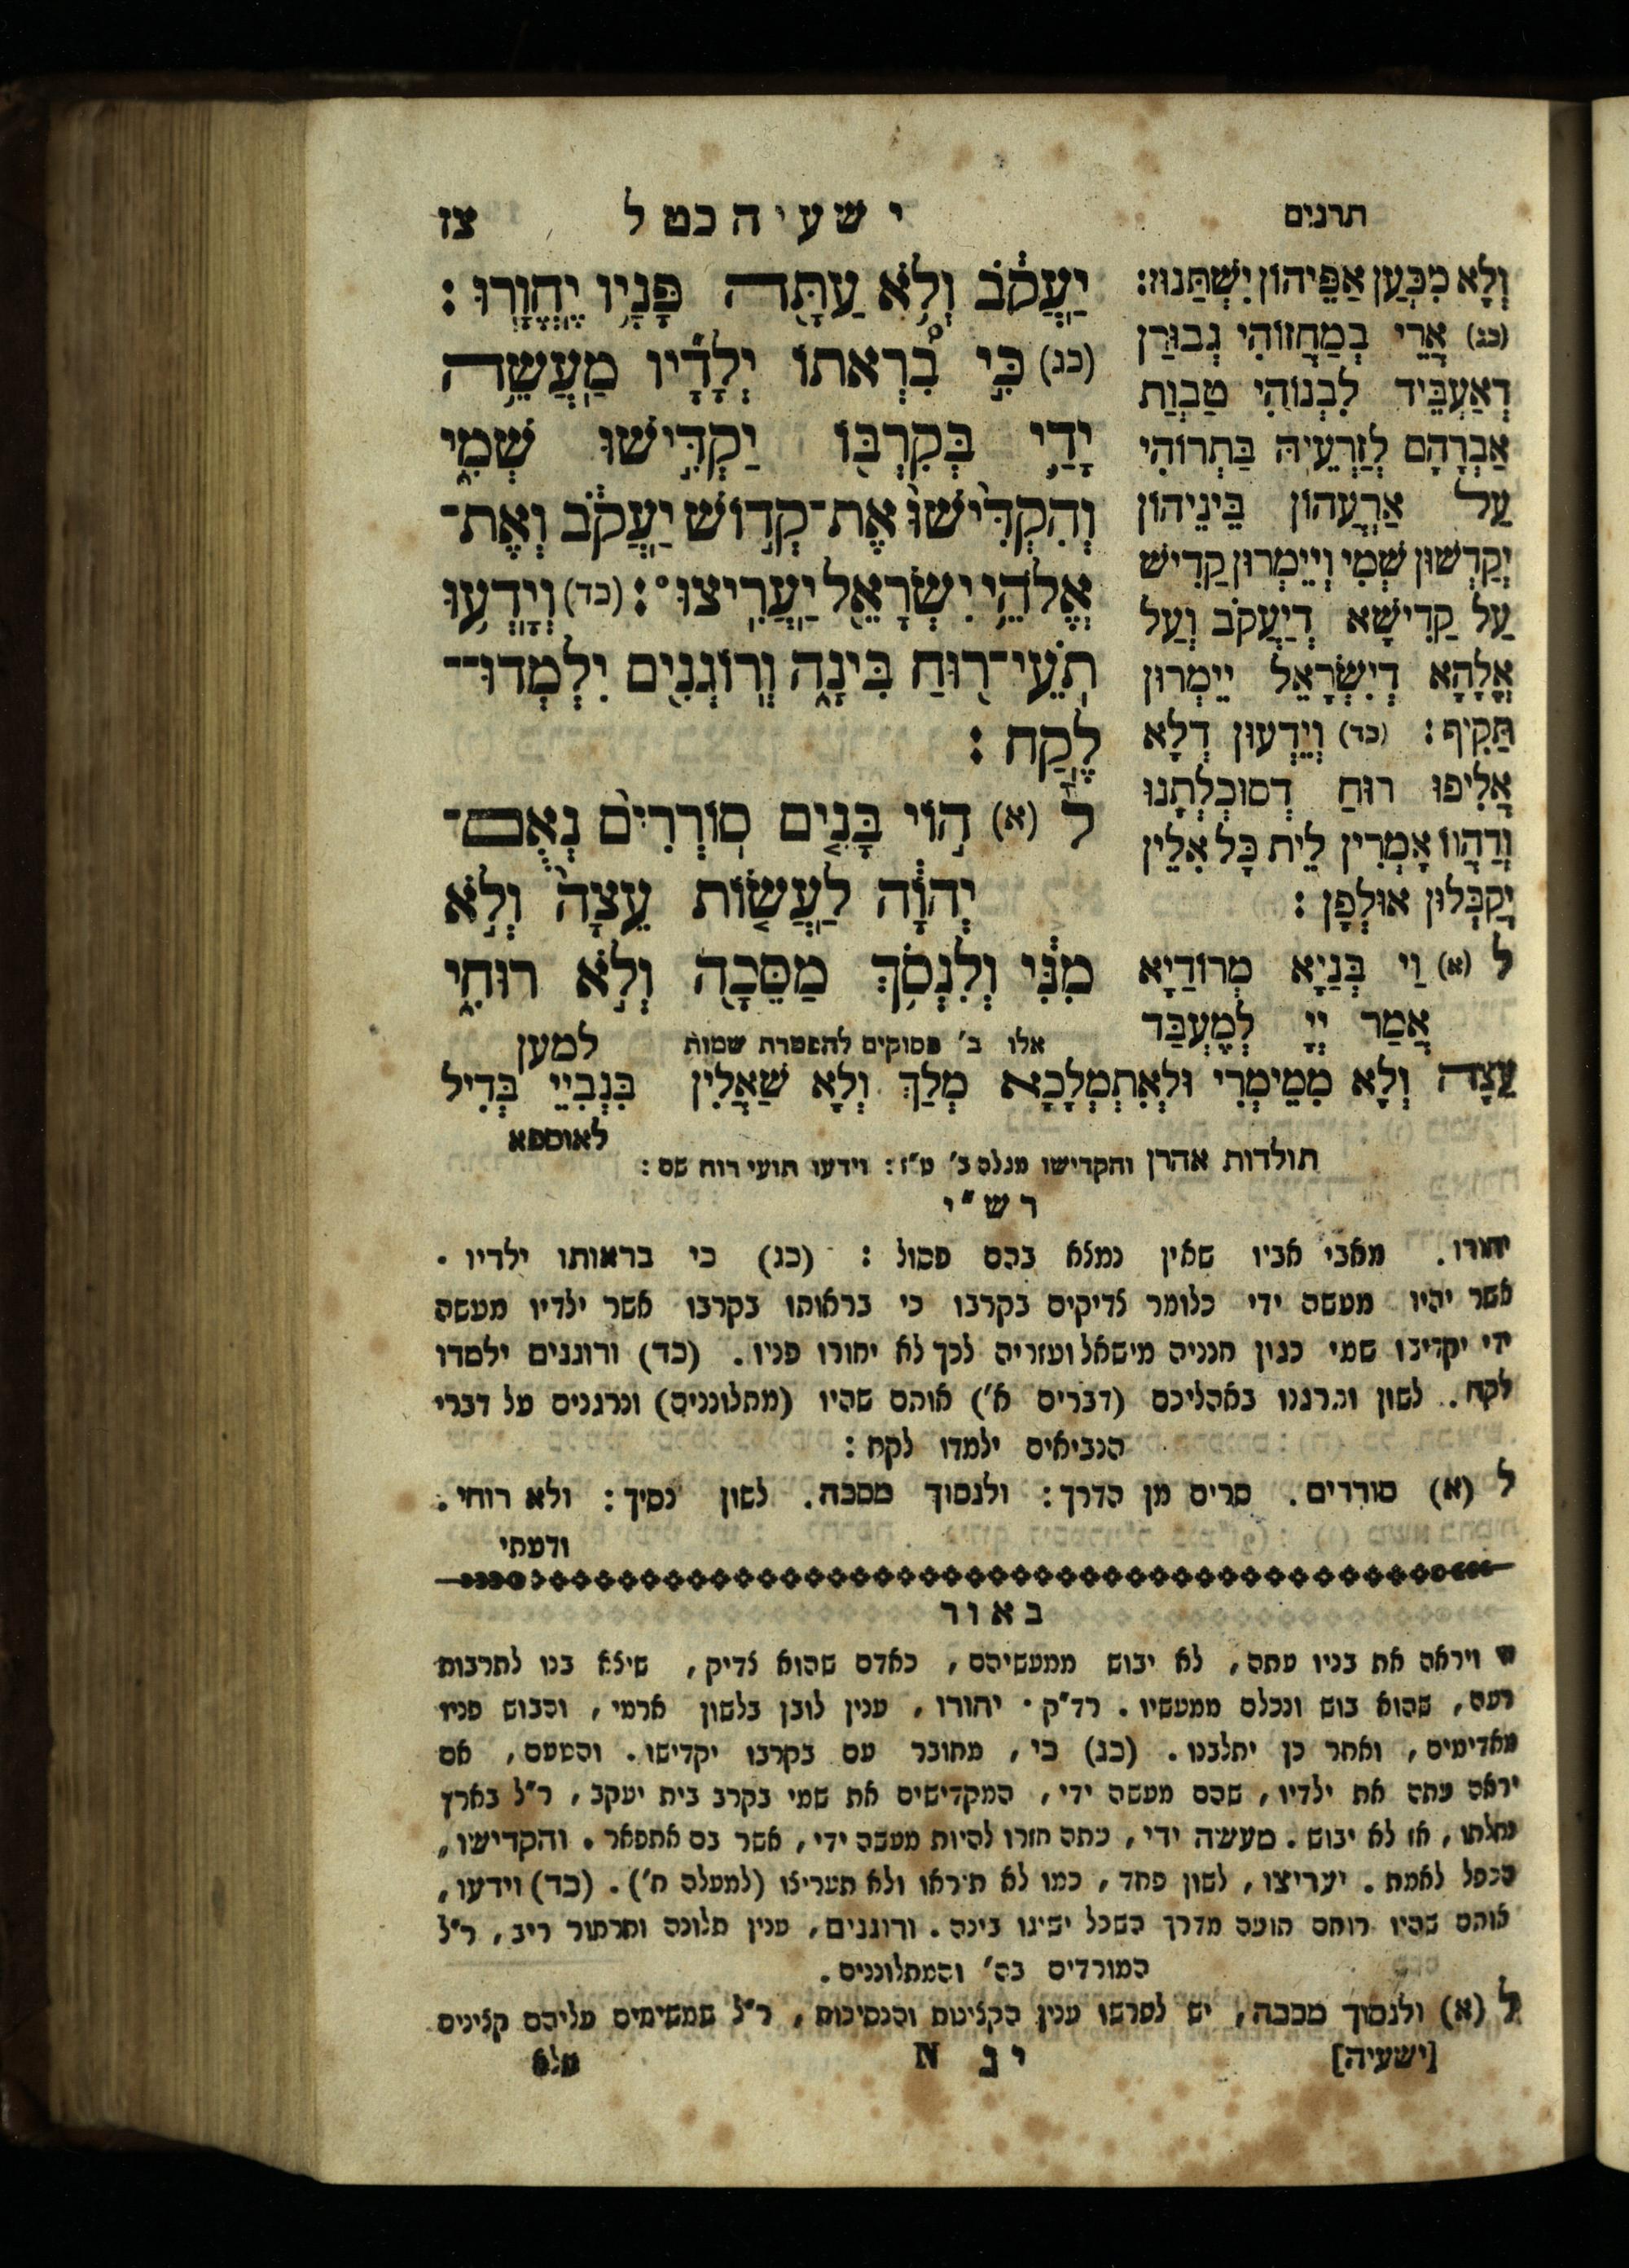 תרגום
ישעיה כט ל
צז
יַעֲקֹב וְלֹא עַתָּה פָּנָיו יֶחֱוָרוּ׃
(כג) כִּי בִרְאֹתוֹ יְלָדָיו מַעֲשֵׂה
יָדַי בְּקִרְבּוֹ יַקְדִּישׁוּ שְׁמִי
וְהִקְדִּישׁוּ אֶת־קְדוֹשׁ יַעֲקֹב וְאֶת־
אֱלֹהֵי יִשְׂרָאֵל יַעֲרִיצוּ°׃ (כד) וְיָדְעוּ
תֹעֵי־רוּחַ בִּינָה וְרוֹגְנִים יִלְמְדוּ־
לֶקַח׃
ל (א) הוֹי בָּנִים סוֹרְרִים נְאֻם־
יְהוָה לַעֲשׂוֹת עֵצָה וְלֹא
מִנִּי וְלִנְסֹךְ מַסֵּכָה וְלֹא רוּחִי
אלו ב' פסוקים להפטרת שמות
למען
וְלָא מִכְּעַן אַפֵּיהוֹן יִשְׁתַּנוּן׃
(כג) אֲרֵי בְמַחֲזוֹהִי גְבוּרַן
דְאַעְבֵּיד לִבְנוֹהִי טַבְוַת
אַבְרָהָם לְזַרְעֵיהּ בַּתְרוֹהִי
עַל אַרְעֲהוֹן בֵּינֵיהוֹן
יְקַדְשׁוּן שְׁמִי וְיֵימְרוּן קַדִישׁ
עַל קַדִישָׁא דְיַעֲקֹב וְעַל
אֱלָהָא דְיִשְׂרָאֵל יֵימְרוּן
תַּקִיף׃ (כד) וְיֵדְעוּן דְלָא
אֲלִיפוּ רוּחַ דְסוּכְלְתָנוּ
וְדַהֲווֹ אָמְרִין לֵית כָּל אִלֵין
יְקַבְּלוּן אוּלְפָן׃
ל (א) וַי בְּנַיָא מְרוֹדַיָא
אֲמַר יְיָ לְמֶעְבַּד
עֵצָה וְלָא מִמֵימְרִי וּלְאִתְמְלָכָא מְלַךְ וְלָא שַׁאֲלִין בִּנְבִיֵי בְּדִיל
לאוספא
תולדות אהרן והקדישו מגלה ב' ט"ז: וידעו תועי רוח שם:
רש"י
יחורו. מאבי אביו שאין נמצא בהם פסול: (כג) כי בראותו ילדיו.
אשר יהיו מעשה ידי כלומר צדיקים בקרבו כי בראותו בקרבו אשר ילדיו מעשה
ידי יקדישו שמי כגון חנניה מישאל ועזריה לכך לא יחורו פניו. (כד) ורוגנים ילמדו
לקח. לשון ותרגנו באהליכם (דברים א') אותם שהיו (מתלוננים) ונרגנים על דברי
הנביאים ילמדו לקח:
ל (א) סוררים. סרים מן הדרך: ולנסוך מסכה. לשון נסיך: ולא רוחי.
ודעתי
באור
ויראה את בניו עתה, לא יבוש ממעשיהם, כאדם שהוא צדיק, שיצא בנו לתרבות
רעה, שהוא בוש ונכלם ממעשיו. רד"ק. יחורו, ענין לובן בלשון ארמי, והבוש פניו
מאדימים, ואחר כן יתלבנו. (כג) כי, מחובר עם בקרבו יקדישו. והטעם, אם
יראה עתה את ילדיו, שהם מעשה ידי, המקדישים את שמי בקרב בית יעקב, ר"ל בארץ
נחלתו, אז לא יבוש. מעשה ידי, עתה חזרו להיות מעשה ידי, אשר בם אתפאר. והקדישו,
הכפל לאמת. יעריצו, לשון פחד, כמו לא תיראו ולא תעריצו (למעלה ח'). (כד) וידעו,
אותם שהיו רוחם תועה מדרך השכל ישיגו בינה. ורוגנים, ענין תלונה ותרעור ריב, ר"ל
המורדים בה' והמתלוננים.
ל (א) ולנסוך מסכה, יש לפרשו ענין הקצינות והנסיכות, ר"ל שמשימים עליהם קצינים
[ישעיה]
יג N
שלא